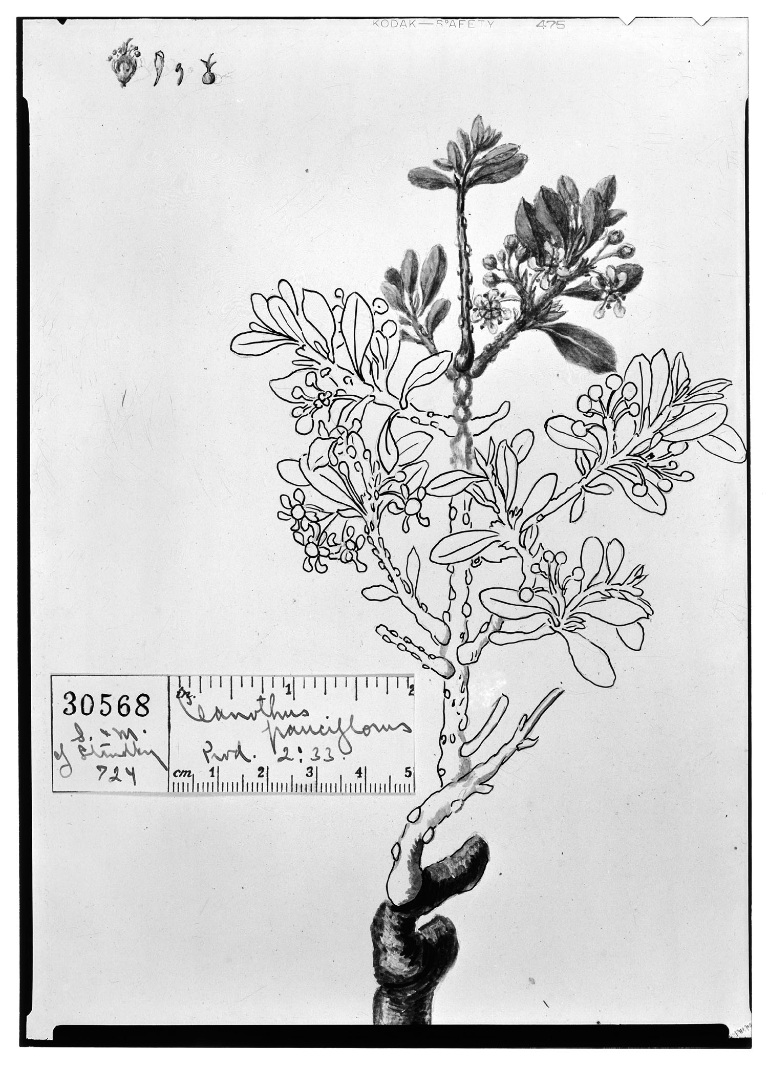 KODAK—SAFETY 475
30568
S. & M.
of Standley
724
in. 1 2
Ceanothus
pauciflorus
Prod. 2:33.
cm 1 2 3 4 5